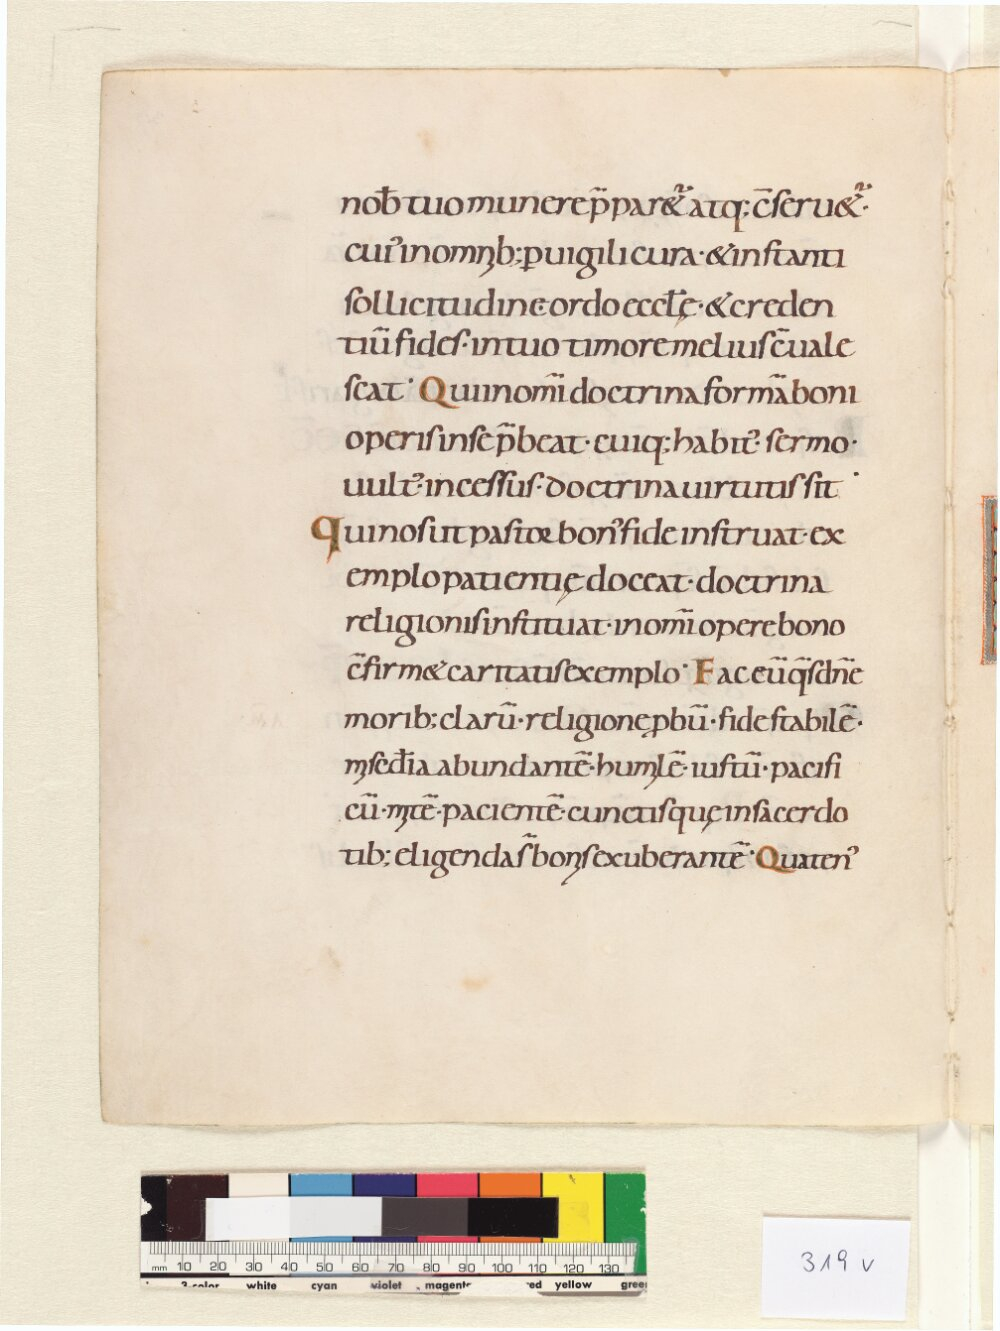 nob̄ tuo munere p̄par&̃ atq; c̄seru&̃·
cui᷒ in omnib; p uigili cura· & instanti
sollicitudine· ordo eccl̄ę· & creden
tiū fides· in tuo timore melius c̄uale
scat· Qui in om̄i doctrina formā boni
operis in se p̄beat· cuiq; habit᷒· sermo·
uult᷒· incessus· doctrina uirtutis sit·
Qui nos ut pastor bon᷒ fide instruat· ex
emplo patientię doceat· doctrina
religionis instituat· in om̄i opere bono
c̄firm& caritatis exemplo· Fac eū q̄s dn̄e
morib; clarū· religione pbū· fide stabilē·
misc̄dia abundantē· humilē· iustū· pacifi
cū· mitē· pacientē· cunctisquę in sacerdo
tib; eligendas̄ bonis exuberantē· Quaten᷒
mm 10 20 30 40 50 60 70 80 90 100 110 120 130
3-color white cyan violet magenta red yellow green
319 v